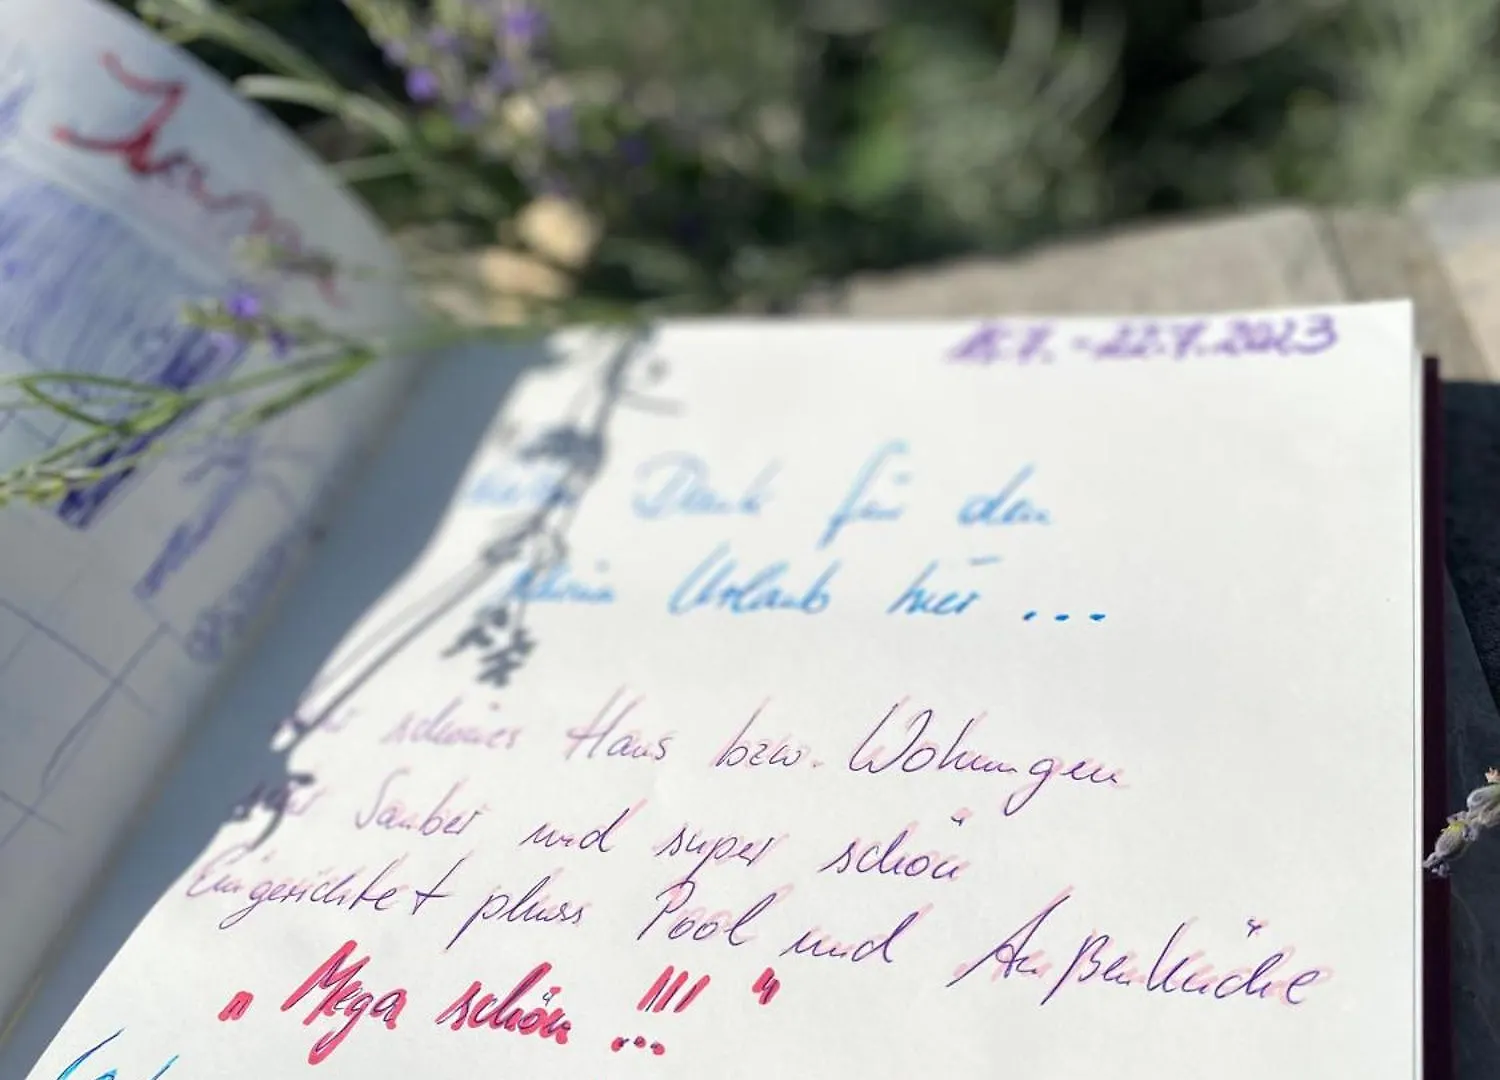 - 22.7.2023
Vielen Dank für den
Urlaub hier ...
schönes Haus bzw. Wohnungen
Sauber und super schön
Eingerichtet pluss Pool und Außenküche
„Mega schön...!!!"